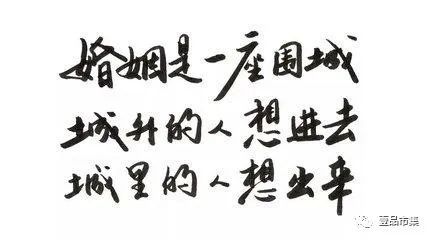 婚姻是一座围城
城外的人想进去
城里的人想出来
壹品市集